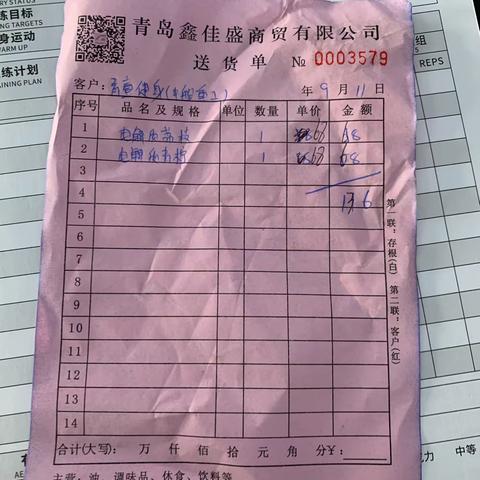 练目标
NING TARGETS
身运动
WARM UP
练计划
AINING PLAN
青岛鑫佳盛商贸有限公司
送货单 № 0003579
客户: 年 9 月 11 日
序号 品名及规格 单位 数量 单价 金额
1 1 68 68
2 1 68 68
3
4 136
5
6
7
8
9
10
11
12
13
14
合计(大写): 万 仟 佰 拾 元 角 分¥:
主营: 油、调味品、休食、饮料等
第一联:存根(白) 第二联:客户(红)
组
REPS
力 中等